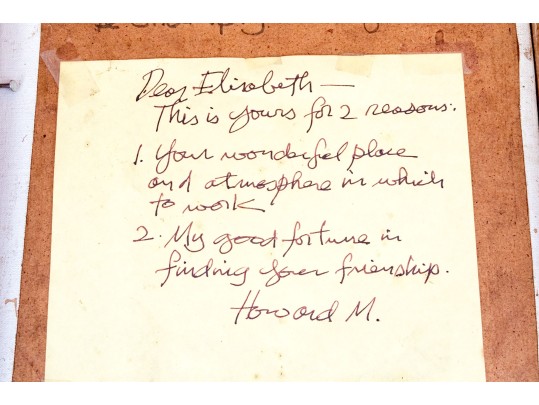 Dear Elisabeth —
This is yours for 2 reasons:
1. Your wonderful place
and atmosphere in which
to work
2. My good fortune in
finding your frienship.
Howard M.